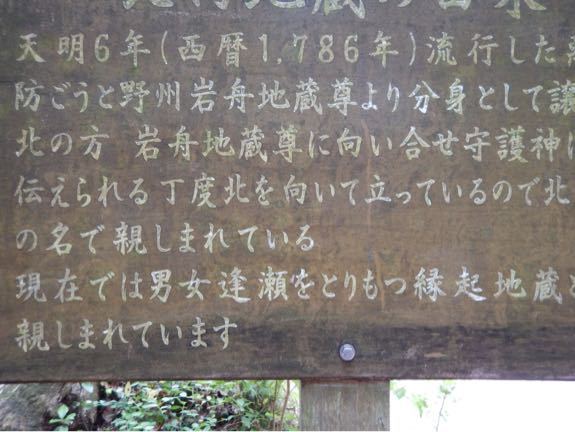 地蔵の由来
天明6年(西暦1,786年)流行した
防ごうと野州岩舟地蔵尊より分身として譲
北の方 岩舟地蔵尊に向い合せ守護神に
伝えられる丁度北を向いて立っているので北
の名で親しまれている
現在では男女逢瀬をとりもつ縁起地蔵と
親しまれています